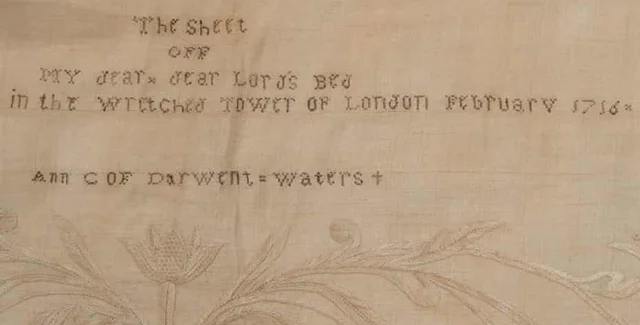 The Sheet
OFF
MY dear× dear Lord's Bed
in the wretched Tower OF London February 1716×
Ann C OF Darwent=waters†